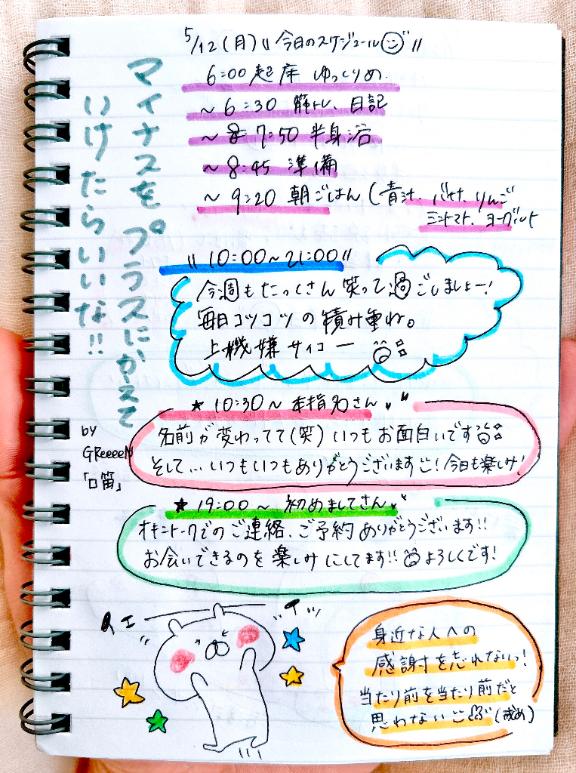 5/12(月) 〃今日のスケジュール〃
6:00 起床 ゆっくりめ
～6:30 筋トレ、日記
～7:50 半身浴
～8:45 準備
～9:20 朝ごはん(青汁、バナナ、りんご
ミニトマト、ヨーグルト
マイナスを プラスにかえて
いけたらいいな!!
by
GReeeeN
「口笛」
〃10:00～21:00〃
今週もたっくさん笑って過ごしましょー!
毎日コツコツの積み重ね。
上機嫌サイコー
★10:30～本指名さん
名前が変わってて(笑)いつもお面白いです
そして…いつもいつもありがとうございます!今日も楽しみ!
★19:00～初めましてさん
オキニトークでのご連絡、ご予約ありがとうございます!!
お会いできるのを楽しみにしてます!!よろしくです!
身近な人への
感謝を忘れないっ!
当たり前を当たり前だと
思わない(戒め)